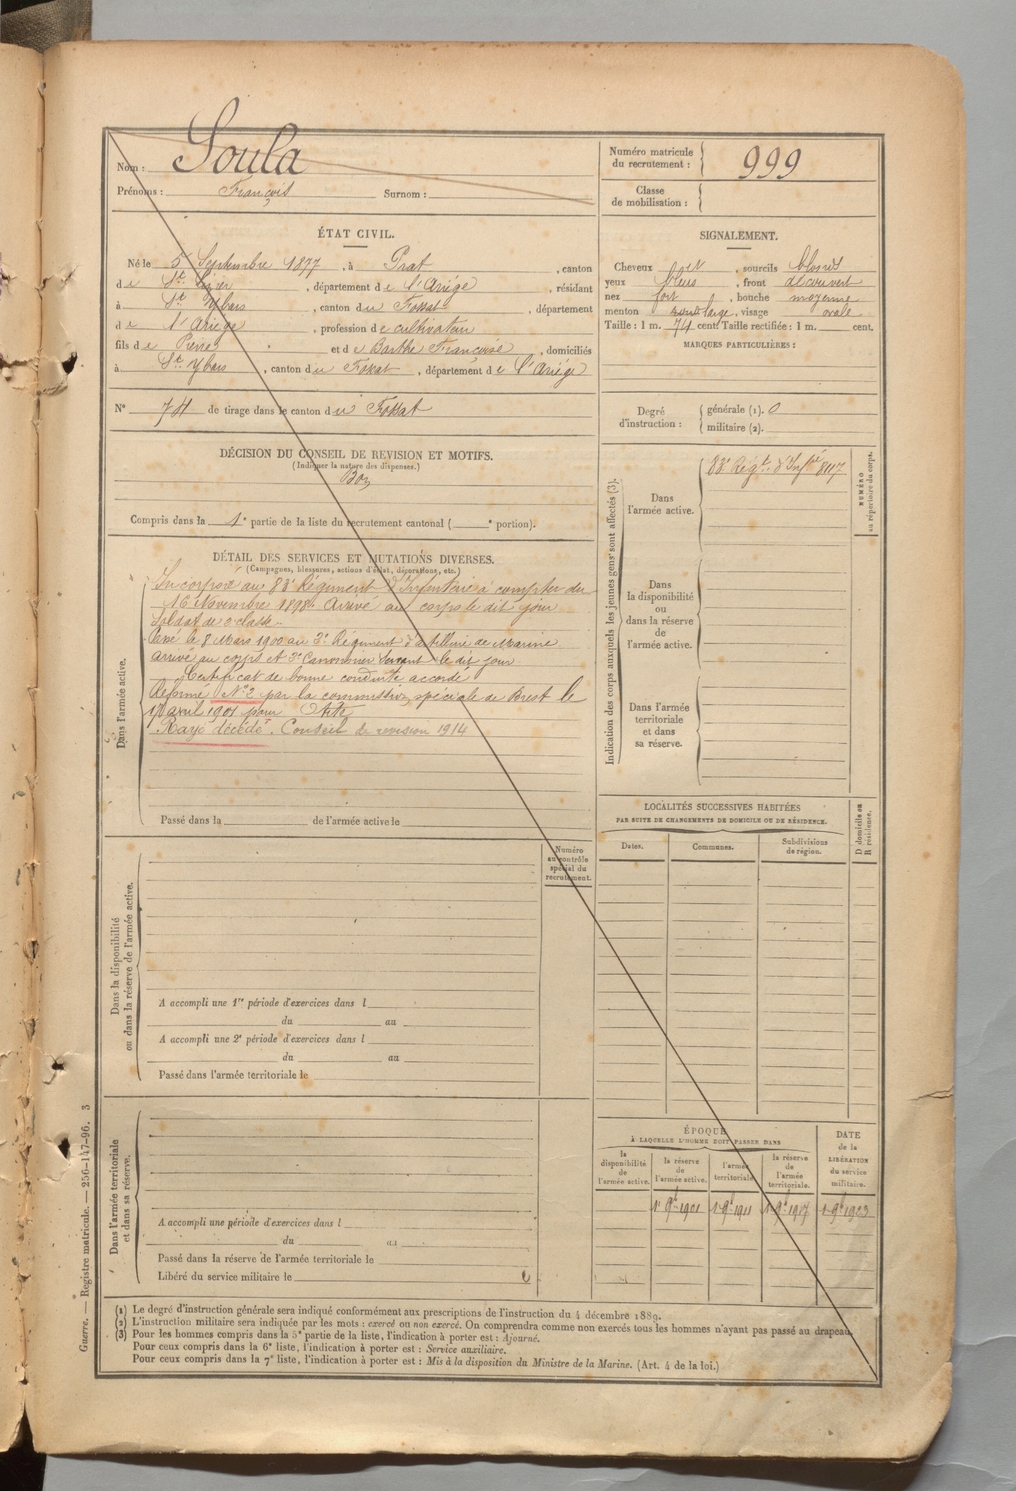 Nom : Soula
Prénoms : François Surnom :
Numéro matricule
du recrutement : 999
Classe
de mobilisation :
ÉTAT CIVIL.
Né le 5 Septembre 1877, à Prat, canton
de St Lizier, département de l'Ariége, résidant
à St Ybars, canton du Fossat, département
de l'Ariége, profession de cultivateur
fils de Pierre et de Barthe Françoise, domiciliés
à St Ybars, canton du Fossat, département de l'Ariége
N° 74 de tirage dans le canton du Fossat
SIGNALEMENT.
Cheveux blonds, sourcils blonds
yeux bleus, front découvert
nez fort, bouche moyenne
menton large, visage ovale
Taille : 1 m. 74 cent. Taille rectifiée : 1 m. cent.
MARQUES PARTICULIÈRES :
Degré
d'instruction :
générale (1). 0
militaire (2).
DÉCISION DU CONSEIL DE REVISION ET MOTIFS.
(Indiquer la nature des dispenses.)
Bon
Compris dans la 1e partie de la liste du recrutement cantonal ( e portion).
DÉTAIL DES SERVICES ET MUTATIONS DIVERSES.
(Campagnes, blessures, actions d'éclat, décorations, etc.)
Dans l'armée active.
Incorporé au 83e Régiment d'Infanterie à compter du
16 Novembre 1898. Arrivé au corps le dit jour
Soldat de 2e classe.
Passé le 8 Mars 1900 au 3e Régiment d'artillerie de Marine
arrivé au corps et 2e Canonnier Servant le dit jour
Certificat de bonne conduite accordé
Réformé N°2 par la commission spéciale de Brest le
avril 1901 pour Otite
Rayé "décédé". Conseil de revision 1914
Passé dans la de l'armée active le
Indication des corps auxquels les jeunes gens sont affectés (3).
Dans
l'armée active.
83e Régt d'Infie 8117
NUMÉRO
au répertoire du corps.
Dans
la disponibilité
ou
dans la réserve
de
l'armée active.
Dans l'armée
territoriale
et dans
sa réserve.
LOCALITÉS SUCCESSIVES HABITÉES
PAR SUITE DE CHANGEMENTS DE DOMICILE OU DE RÉSIDENCE.
Dates.
Communes.
Subdivisions
de région.
D domicile ou
R résidence.
Dans la disponibilité
ou dans la réserve de l'armée active.
Numéro
au contrôle
spécial du
recrutement.
A accompli une 1re période d'exercices dans l
du au
A accompli une 2e période d'exercices dans l
du au
Passé dans l'armée territoriale le
Dans l'armée territoriale
et dans sa réserve.
A accompli une période d'exercices dans l
du au
Passé dans la réserve de l'armée territoriale le
Libéré du service militaire le
ÉPOQUE
À LAQUELLE L'HOMME DOIT PASSER DANS
la
disponibilité
de
l'armée active.
la réserve
de
l'armée active.
l'armée
territoriale.
la réserve
de
l'armée
territoriale.
DATE
de la
LIBÉRATION
du service
militaire.
1 9bre 1901 1 9bre 1911 1 9bre 1917 1 9bre 1923
(1) Le degré d'instruction générale sera indiqué conformément aux prescriptions de l'instruction du 4 décembre 1889.
(2) L'instruction militaire sera indiquée par les mots : exercé ou non exercé. On comprendra comme non exercés tous les hommes n'ayant pas passé au drapeau.
(3) Pour les hommes compris dans la 5e partie de la liste, l'indication à porter est : Ajourné.
Pour ceux compris dans la 6e liste, l'indication à porter est : Service auxiliaire.
Pour ceux compris dans la 7e liste, l'indication à porter est : Mis à la disposition du Ministre de la Marine. (Art. 4 de la loi.)
Guerre. — Registre matricule. — 256-147-96. 3